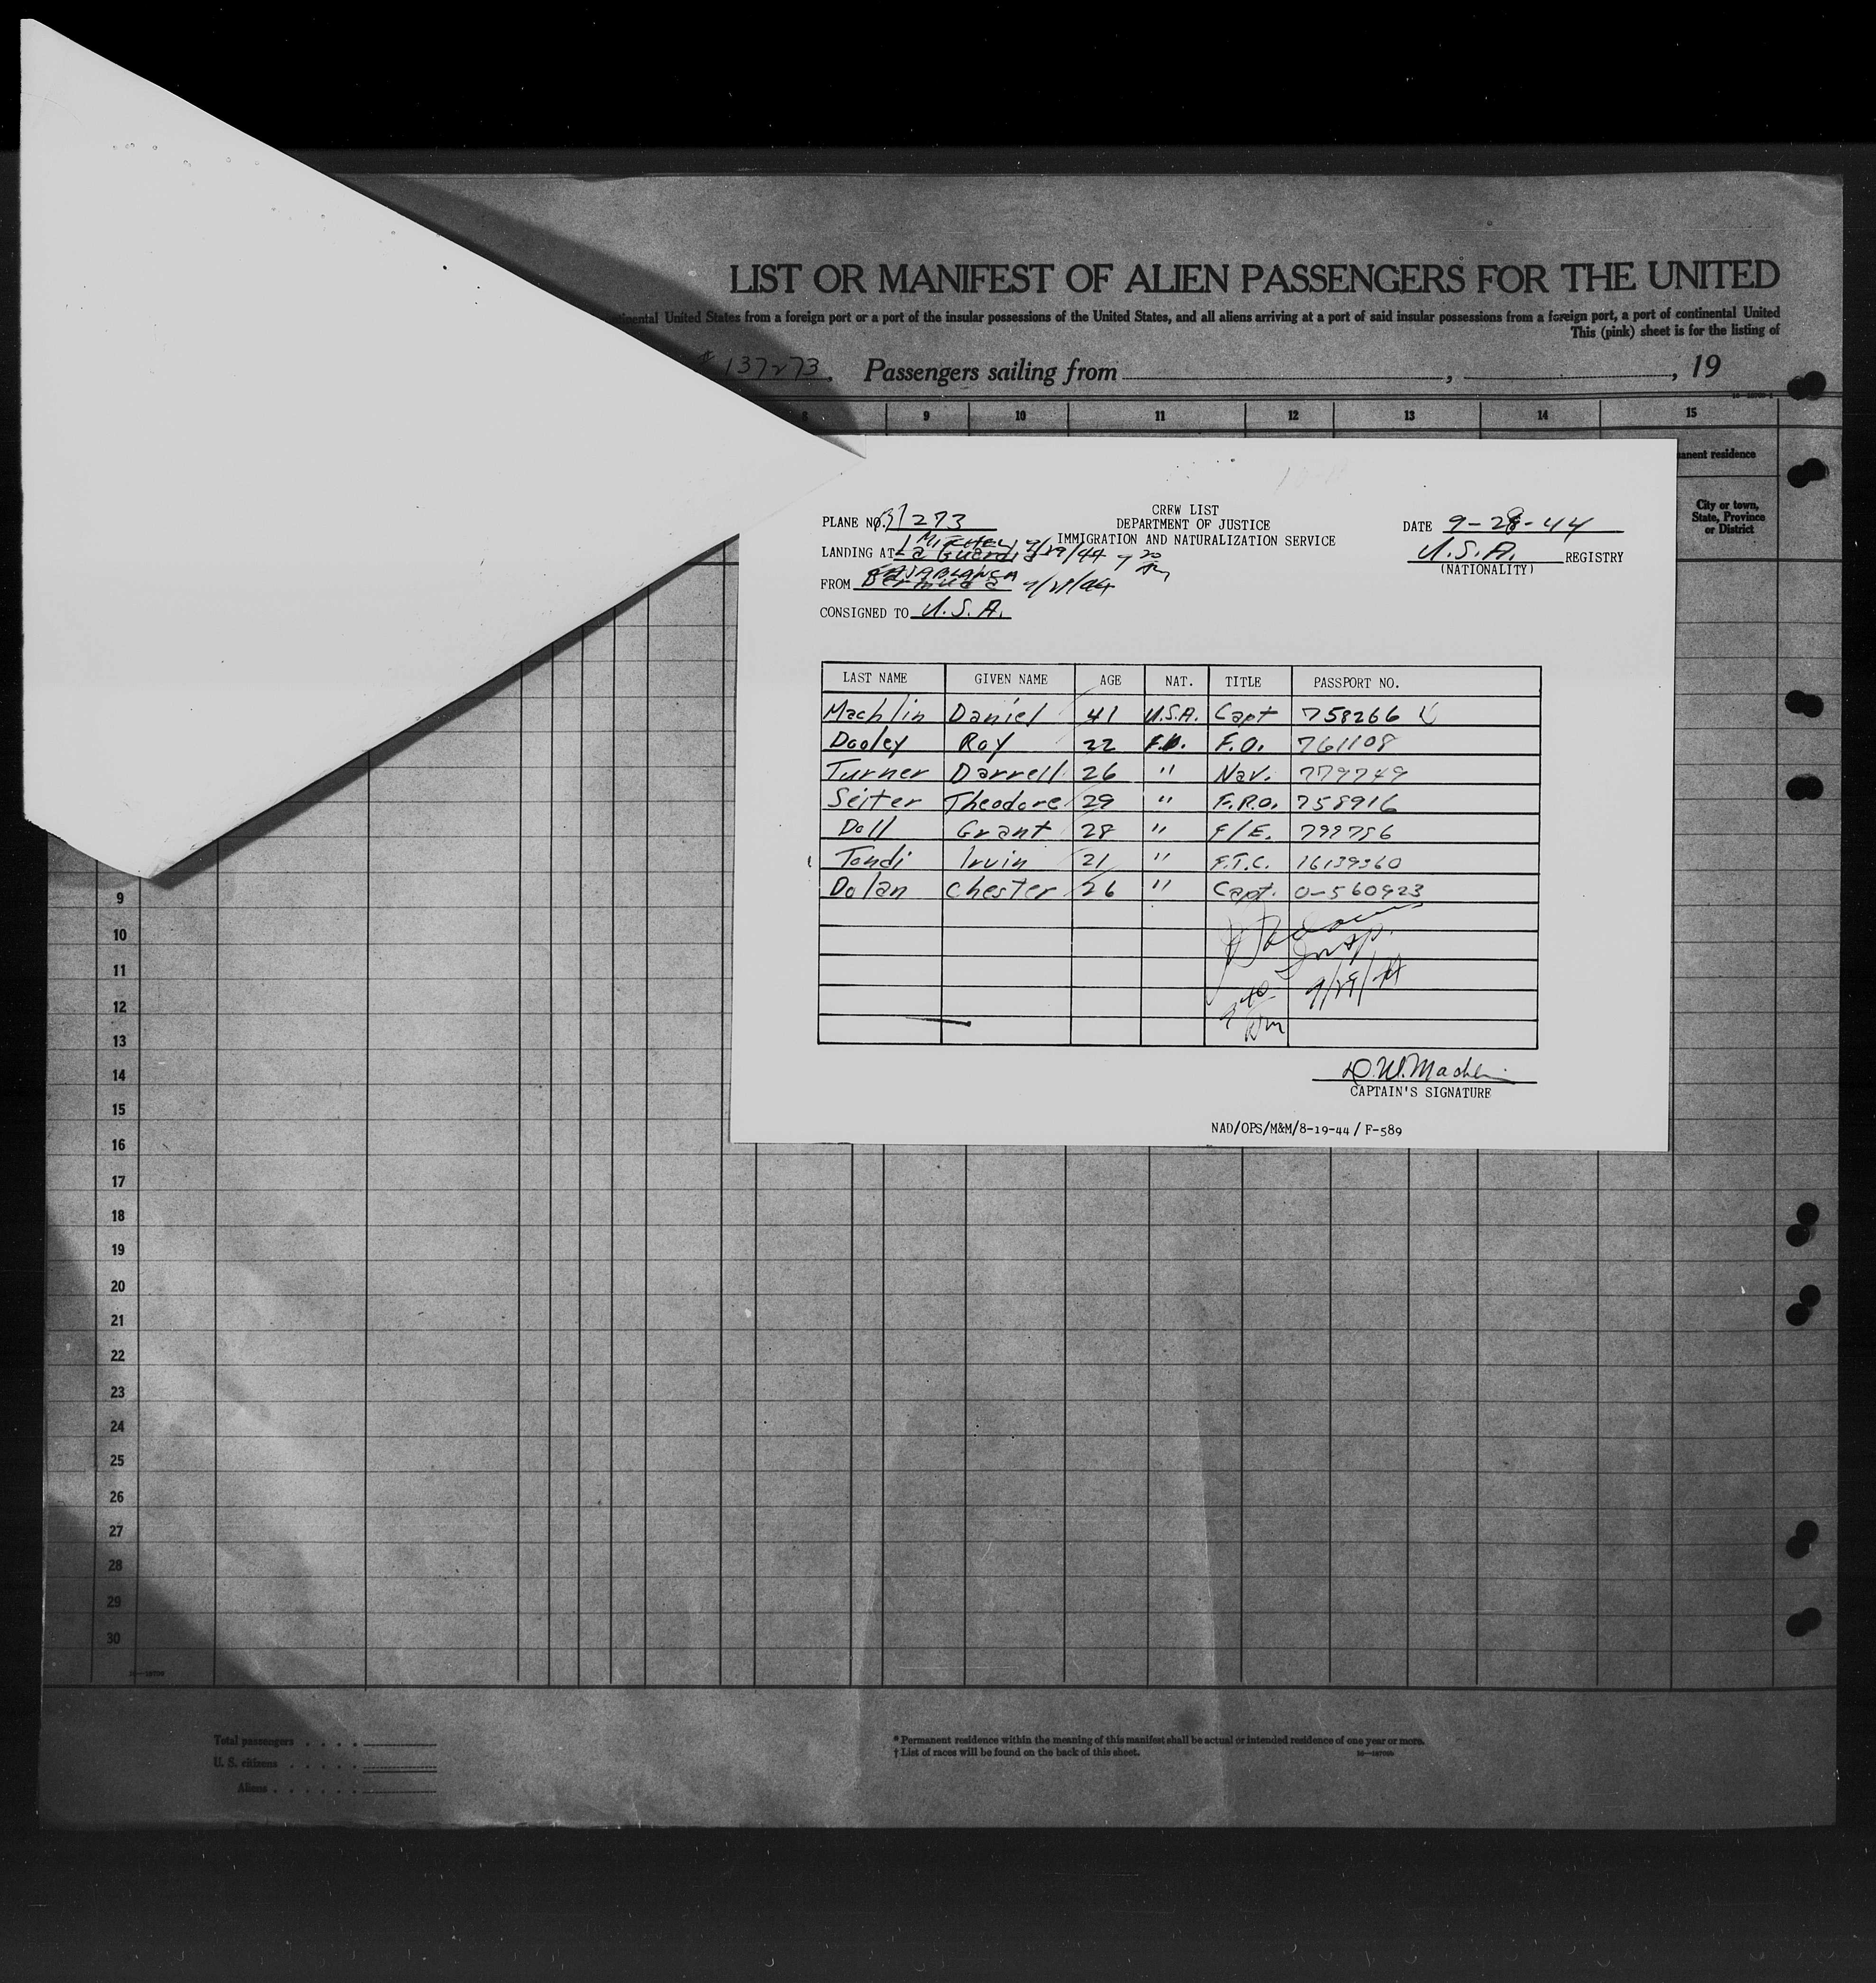 LIST OR MANIFEST OF ALIEN PASSENGERS FOR THE UNITED
continental United States from a foreign port or a port of the insular possessions of the United States, and all aliens arriving at a port of said insular possessions from a foreign port, a port of continental United
This (pink) sheet is for the listing of
# 137273, Passengers sailing from , , 19
8 9 10 11 12 13 14 15
manent residence
City or town, State, Province or District
CREW LIST
PLANE NO. 37273 DEPARTMENT OF JUSTICE DATE 9-28-44
IMMIGRATION AND NATURALIZATION SERVICE
LANDING AT La Guardia MITCHEL 9/29/44 U.S.A. REGISTRY
(NATIONALITY)
FROM Bermuda CASABLANCA
CONSIGNED TO U.S.A.
LAST NAME GIVEN NAME AGE NAT. TITLE PASSPORT NO.
Machlin Daniel 41 U.S.A. Capt 758266
Dooley Roy 22 F.O. 761108
Turner Darrell 26 " Nav. 779749
Seiter Theodore 29 " F.R.O. 758916
Doll Grant 28 " F/E. 799756
Tondi Irvin 21 " F.T.C. 16139360
Dolan Chester 26 " Capt. 0-560923
Insp.
9/29/44
D.W. Machlin
CAPTAIN'S SIGNATURE
NAD/OPS/M&M/8-19-44 / F-589
9
10
11
12
13
14
15
16
17
18
19
20
21
22
23
24
25
26
27
28
29
30
Total passengers
U. S. citizens
Aliens
* Permanent residence within the meaning of this manifest shall be actual or intended residence of one year or more.
† List of races will be found on the back of this sheet.